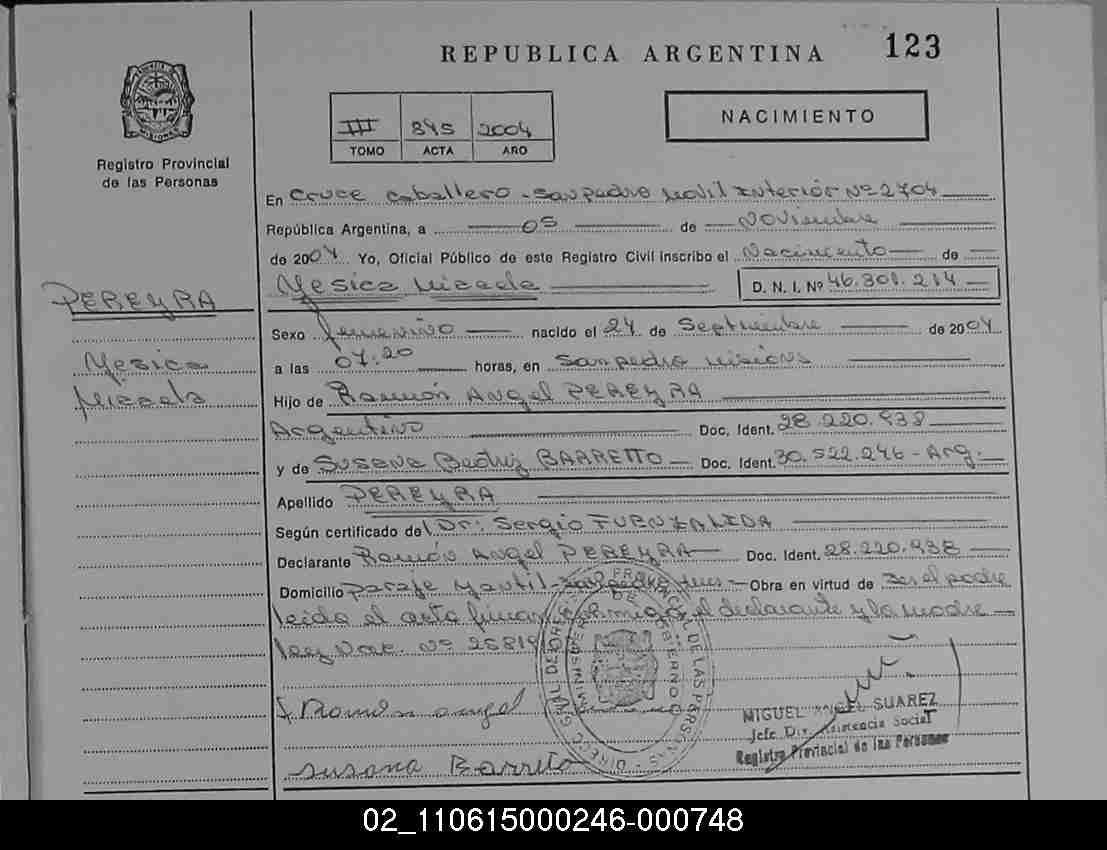 REPUBLICA ARGENTINA 123
MISIONES
Registro Provincial
de las Personas
III 845 2004
TOMO ACTA AÑO
NACIMIENTO
En Cruce Caballero - San Pedro Movil Interior Nº 2704
República Argentina, a 05 de Noviembre
de 2004 Yo, Oficial Público de este Registro Civil inscribo el Nacimiento de
Yesica Micaela D. N. I. Nº 46.301.214
PEREYRA
Yesica
Micaela
Sexo femenino nacido el 24 de Septiembre de 2004
a las 07:20 horas, en San Pedro Misiones
Hijo de Ramón Angel PEREYRA
Argentino Doc. Ident. 28.220.938
y de Susana Beatriz BARRETTO Doc. Ident. 30.522.246 - Arg.
Apellido PEREYRA
Según certificado de Dr: Sergio FUENZALIDA
Declarante Ramón Angel PEREYRA Doc. Ident. 28.220.938
Domicilio Paraje - Obra en virtud de ser el padre
leida el acta firman el declarante y la madre
Nº 25819
Ramon angel
susana Barreto
MIGUEL ANGEL SUAREZ
Jefe Div. Asistencia Social
Registro Provincial de las Personas
02_110615000246-000748